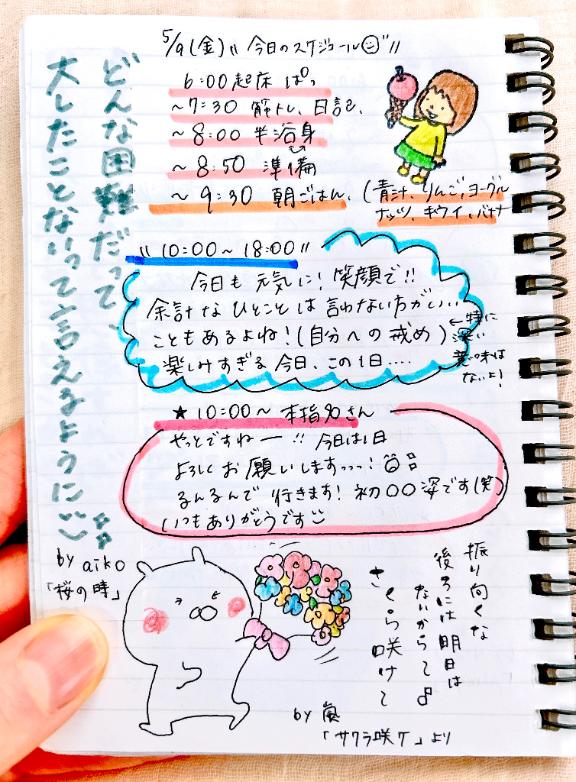 5/9(金)"今日のスケジュール☺"
6:00起床 ぱっ
~7:30 筋トレ、日記、
~8:00 半浴身
~8:50 準備
~9:30 朝ごはん、(青汁、りんご、ヨーグル
ナッツ、キウイ、バナナ
"10:00~18:00"
今日も元気に!笑顔で!!
余計なひとことは言わない方がいい
こともあるよね!(自分への戒め)
←特に
深い
意味は
ないよ!
楽しみすぎる今日、この1日....
★10:00~ 本指名さん
やっとですねー!!今日は1日
よろしくお願いしますっっっ!
るんるんで行きます!初〇〇姿です(笑)
いつもありがとうです
どんな困難だって、
大したことないって言えるように
by aiko
「桜の時」
振り向くな
後ろには明日は
ないからって
さくら咲けて
by 嵐
「サクラ咲ケ」より